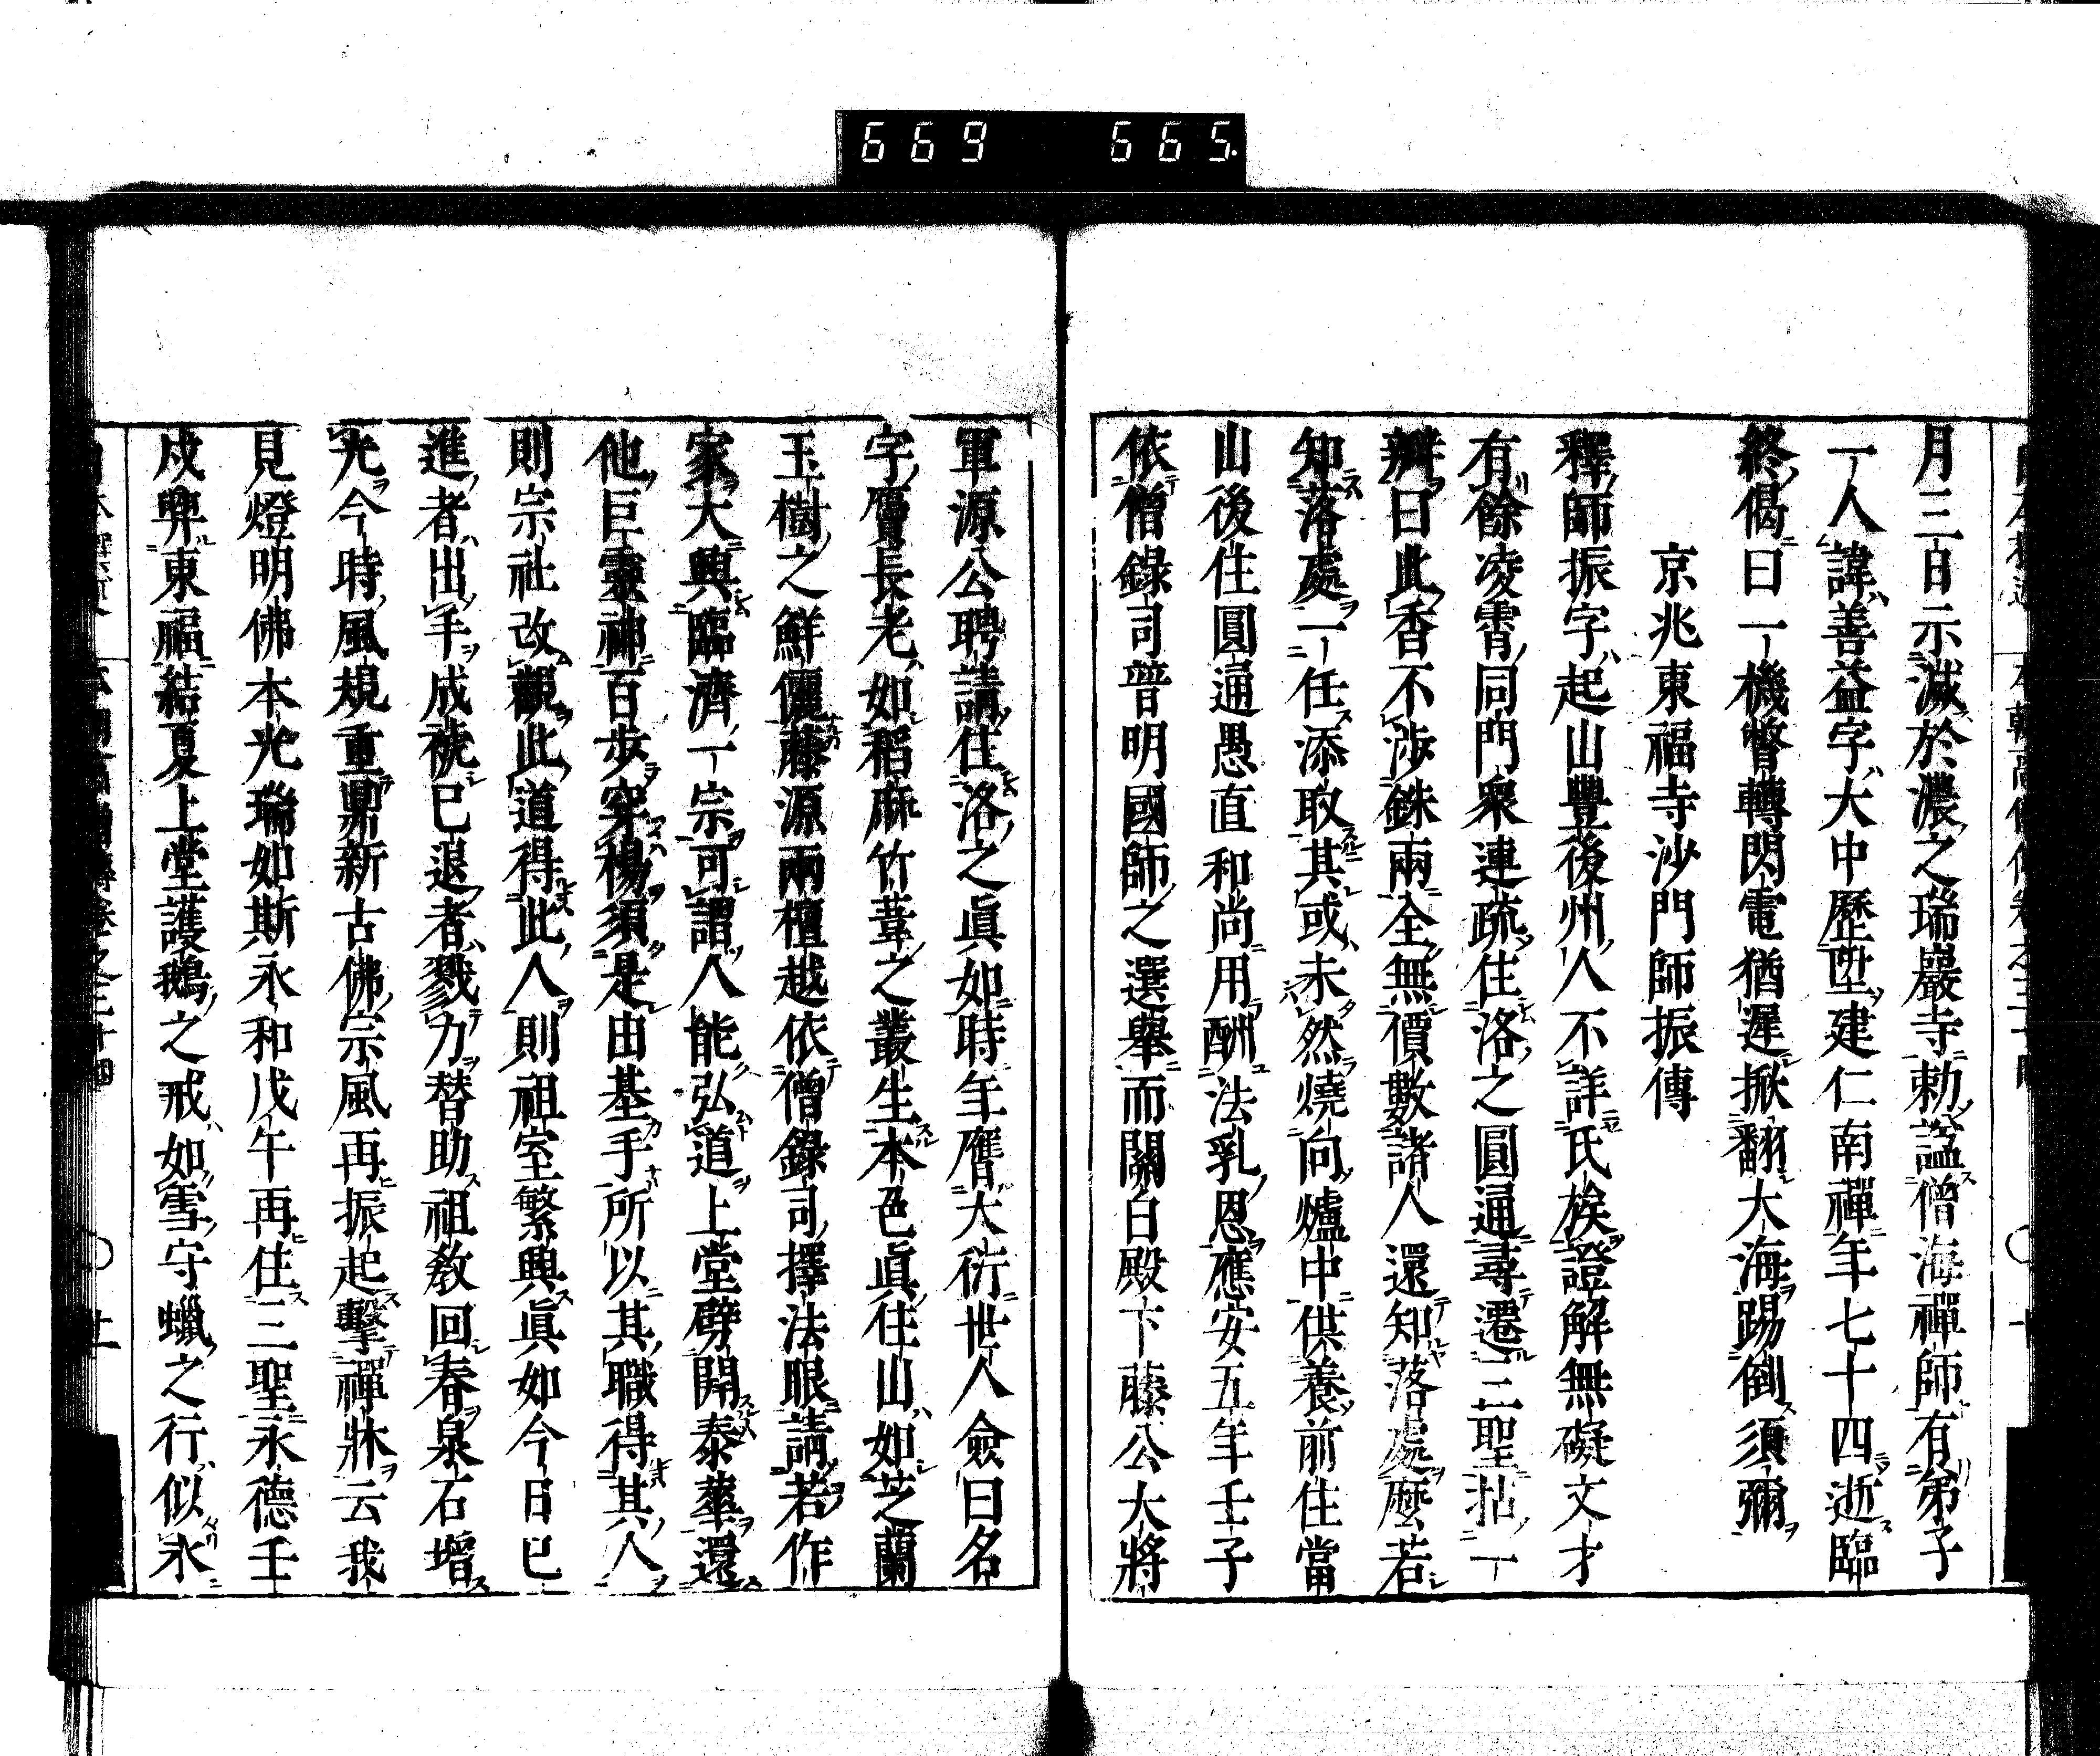 669 665.
月三日示滅於濃之瑞巖寺勅諡僧海禪師有弟子
一人諱善益字大中歷㘴建仁南禪年七十四逝臨
終偈曰一機瞥轉閃電猶遲掀翻大海踢倒須彌
京兆東福寺沙門師振傳
釋師振字起山豐後州人不詳氏族證解無礙文才
有餘凌霄同門衆連疏住洛之圓通尋遷三聖拈一
瓣曰此香不涉銖兩全無價數諸人還知落處麼若
知落處一任添取其或未然燒向爐中供養前住當
山後住圓通愚直和尚用酬法乳恩應安五年壬子
依僧錄司普明國師之選舉而關白殿下藤公大將
軍源公聘請住洛之眞如時年膺大衍世人僉曰名
字鴈長老如稻麻竹葦之叢生本色眞住山如芝蘭
玉樹之鮮儷藤源兩檀越依僧錄司擇法眼請若作
家大興臨濟一宗可謂人能弘道上堂劈開泰華還
他巨靈神百步穿楊須是由基手所以其職得其人
則宗社改觀此道得此人則祖室繁興眞如今日已
進者出手成褫已退者戮力替助祖敎回春泉石增
光今時風規重鼎新古佛宗風再振起擊禪牀云我
見燈明佛本光瑞如斯永和戊午再住三聖永德壬
戌昇東福結夏上堂護鵝之戒如雪守蠟之行似氷